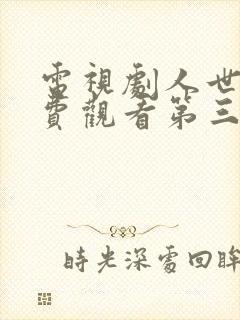 電視劇人世
費觀看第三
時光深處回眸